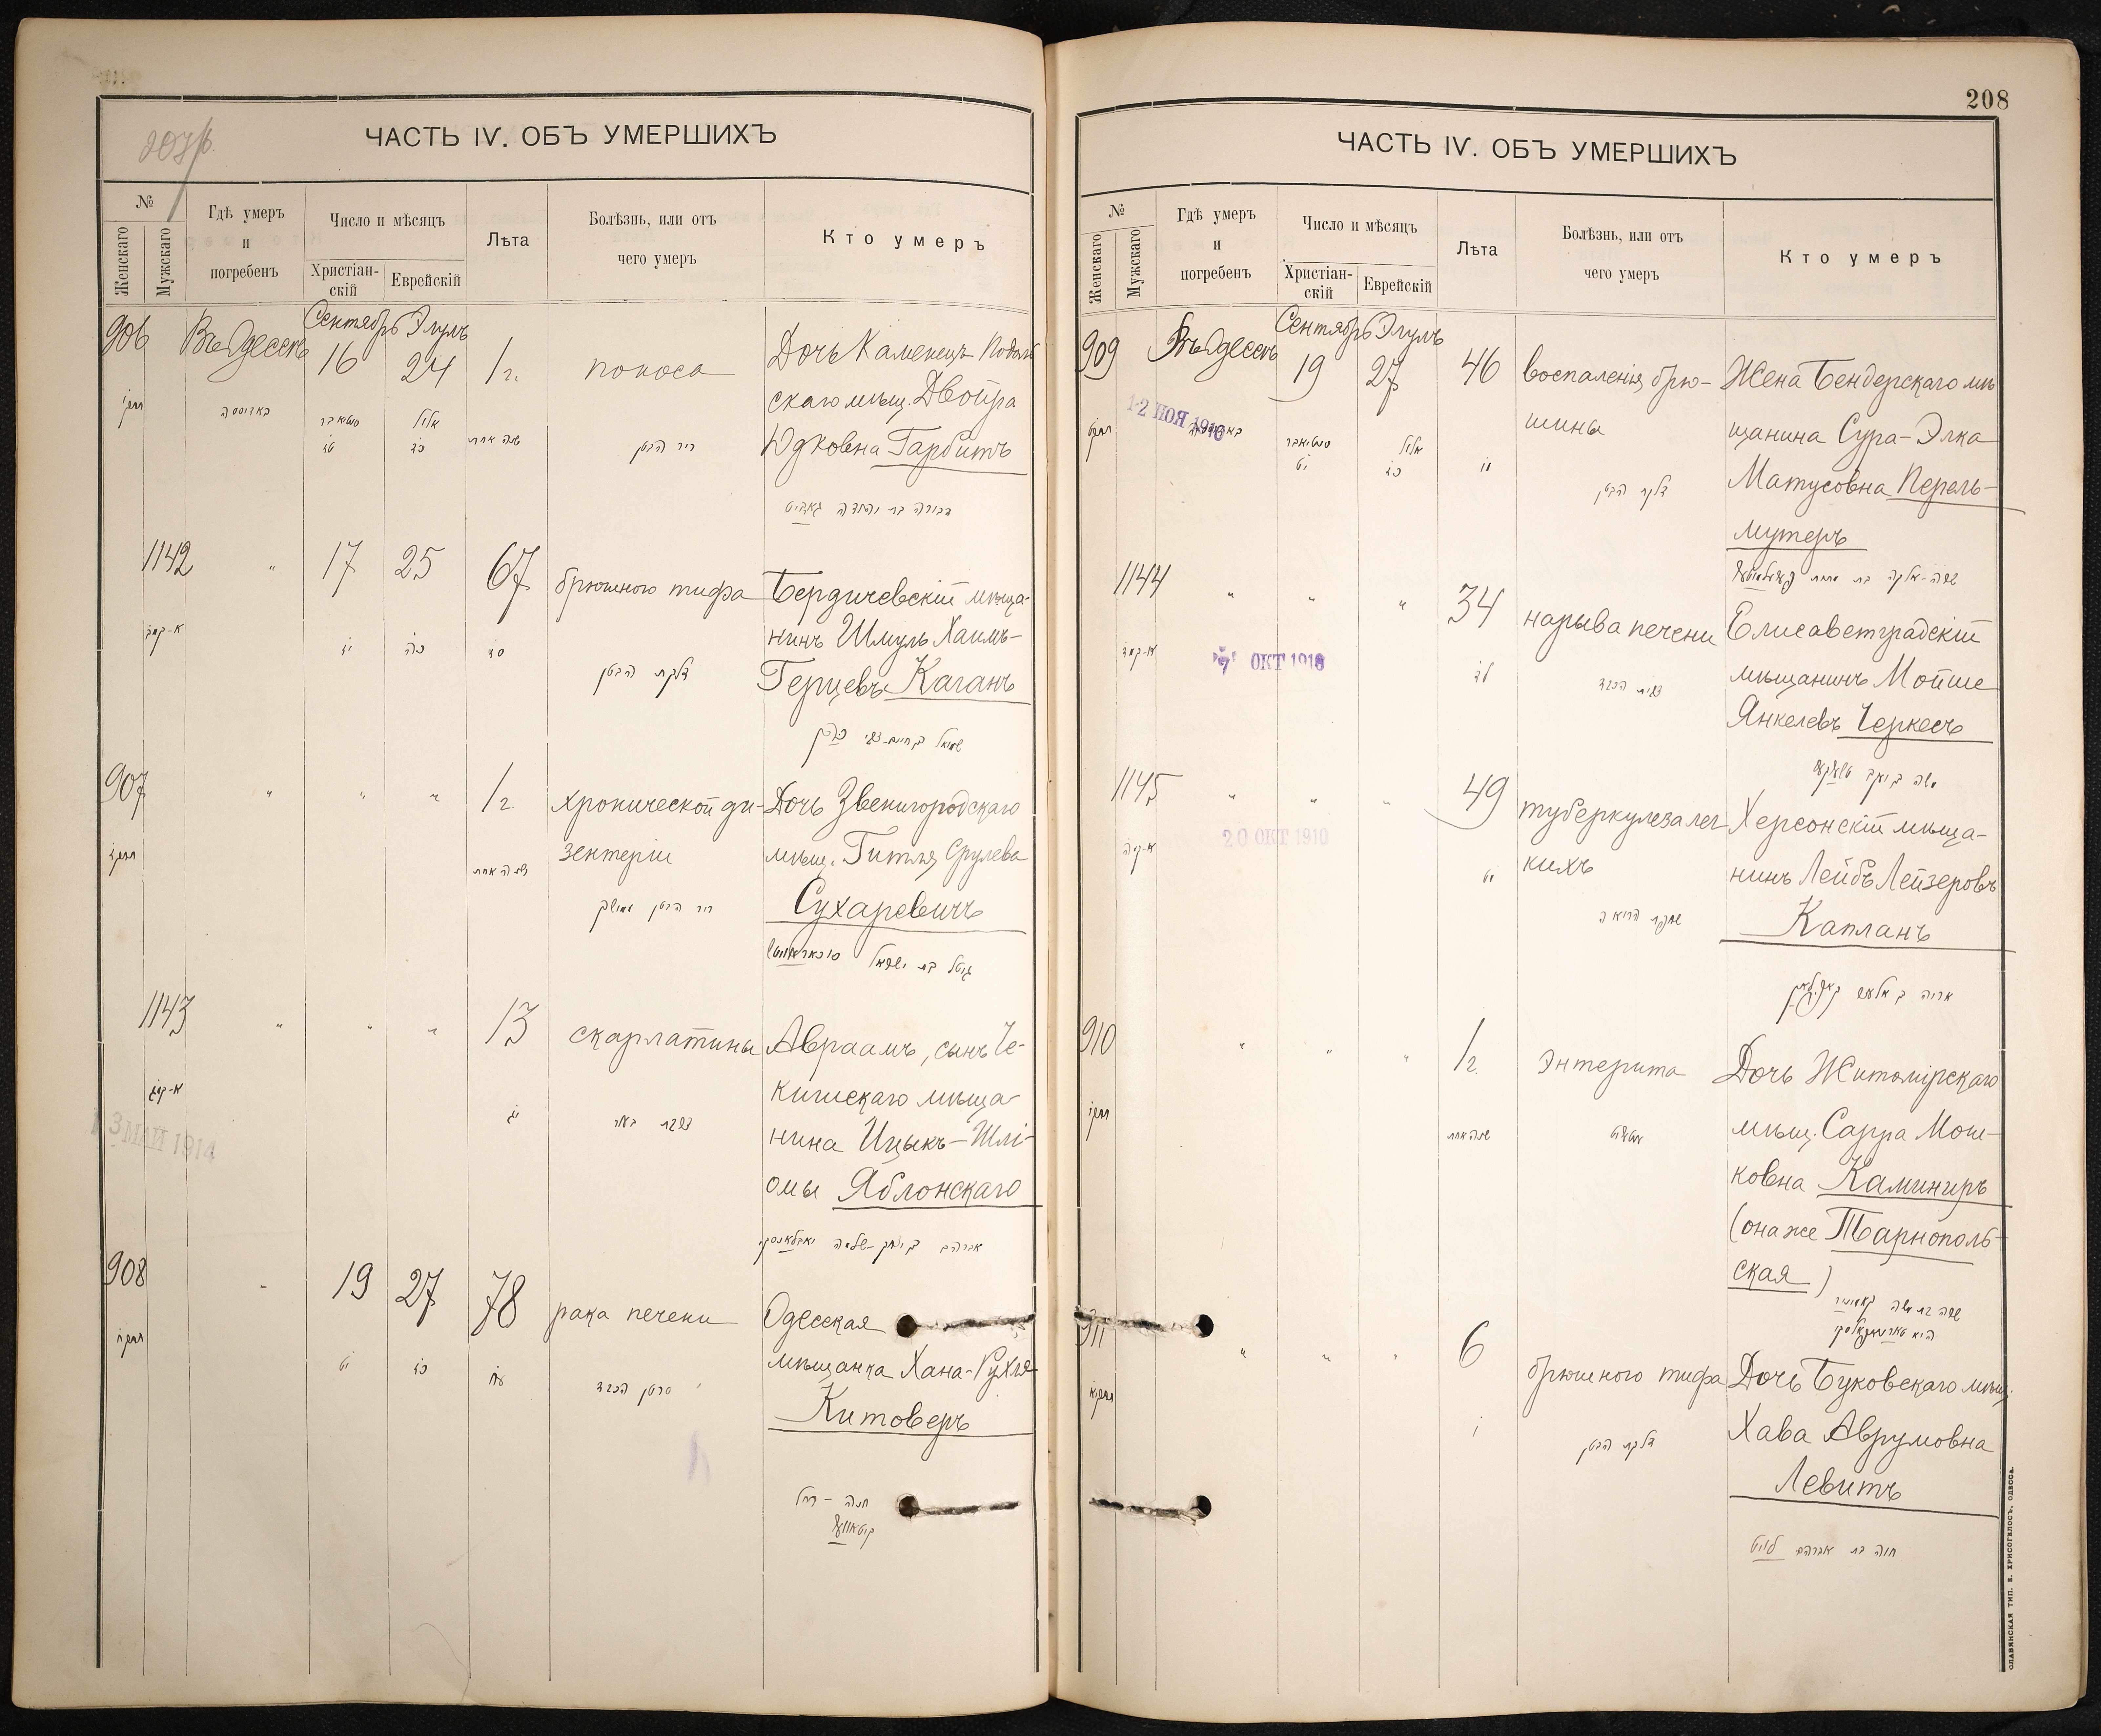 ЧАСТЬ IV. ОБЪ УМЕРШИХЪ
№
Женскаго
Мужскаго
Гдѣ умеръ
и
погребенъ
Число и мѣсяцъ
Христіан-
скій
Еврейскій
Лѣта
Болѣзнь, или отъ
чего умеръ
Кто умеръ
906 Въ Одессѣ Сентябрь Элулъ
16 24 1 г. поноса
Дочь Каменецъ Подоль
скаго мѣщ. Двойра
Юдковна Гарбитъ
באדיססה
אלול
שנה אחת
דבורה בת יהודה גארביט
1142 " 17 25 67 брюшного тифа
Бердичевскій мѣща-
нинъ Шмуль Хаимъ-
Герцевъ Каганъ
כה
דלקת הבטן
907 " " " 1 г. хронической ди-
зентеріи
Дочь Звенигородскаго
мѣщ. Гитля Срулева
Сухаревичъ
שנה אחת
גיטל בת ישראל
1143 " " " 13 скарлатины
Авраамъ, сынъ Че-
кишскаго мѣща-
нина Ицыкъ-Шлі-
омы Яблонскаго
יג
13 МАЙ 1914
908 " 19 27 78 рака печени
Одесская
мѣщанка Хана-Рухля
Китоверъ
יט
סרטן הכבד
חנה - רחל
208
ЧАСТЬ IV. ОБЪ УМЕРШИХЪ
№
Женскаго
Мужскаго
Гдѣ умеръ
и
погребенъ
Число и мѣсяцъ
Христіан-
скій
Еврейскій
Лѣта
Болѣзнь, или отъ
чего умеръ
Кто умеръ
909 Въ Одессѣ Сентябрь Элулъ
19 27 46 воспаленія брю-
шины
Жена Бендерскаго мѣ
щанина Сура-Элка
Матусовна Перель-
мутеръ
12 НОЯ 1910
אלול
יט
דלקת הבטן
1144 " " " 34 нарыва печени
Елисаветградскій
мѣщанинъ Мойше
Янкелевъ Черкесъ
7 ОКТ 1913
לד
1145 " " " 49 туберкулеза лег
кихъ
Херсонскій мѣща-
нинъ Лейбъ Лейзеровъ
Капланъ
20 ОКТ 1910
910 " " " 1 г. энтерита
Дочь Житомірскаго
мѣщ. Сарра Мош-
ковна Каминиръ
(она же Тарнополь-
ская)
שנה אחת
911 " " " 6 брюшного тифа
Дочь Буковскаго мѣщ.
Хава Аврумовна
Левитъ
דלקת הבטן
חוה בת אברהם לוויט
СЛАВЯНСКАЯ ТИП. В. ХРИСОГЕЛОСЪ, ОДЕССА.